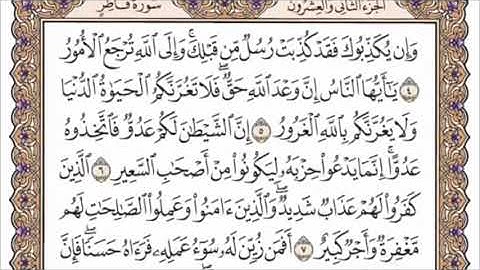 سورة فاطر
الجزء الثاني والعشرون
وَإِن يُكَذِّبُوكَ فَقَدْ كُذِّبَتْ رُسُلٌ مِّن قَبْلِكَ ۚ وَإِلَى ٱللَّهِ تُرْجَعُ ٱلْأُمُورُ
٤ يَٰٓأَيُّهَا ٱلنَّاسُ إِنَّ وَعْدَ ٱللَّهِ حَقٌّ ۖ فَلَا تَغُرَّنَّكُمُ ٱلْحَيَوٰةُ ٱلدُّنْيَا
وَلَا يَغُرَّنَّكُم بِٱللَّهِ ٱلْغَرُورُ ٥ إِنَّ ٱلشَّيْطَٰنَ لَكُمْ عَدُوٌّ فَٱتَّخِذُوهُ
عَدُوًّا ۚ إِنَّمَا يَدْعُوا۟ حِزْبَهُۥ لِيَكُونُوا۟ مِنْ أَصْحَٰبِ ٱلسَّعِيرِ ٦ ٱلَّذِينَ
كَفَرُوا۟ لَهُمْ عَذَابٌ شَدِيدٌ ۖ وَٱلَّذِينَ ءَامَنُوا۟ وَعَمِلُوا۟ ٱلصَّٰلِحَٰتِ لَهُم
مَّغْفِرَةٌ وَأَجْرٌ كَبِيرٌ ٧ أَفَمَن زُيِّنَ لَهُۥ سُوٓءُ عَمَلِهِۦ فَرَءَاهُ حَسَنًا ۖ فَإِنَّ